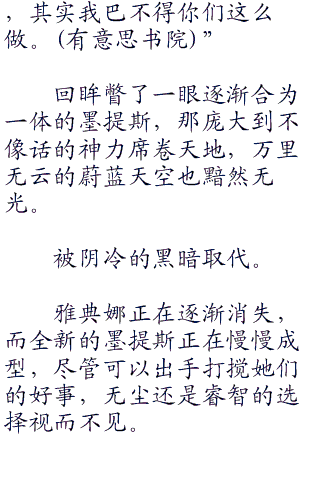 ，其实我巴不得你们这么
做。(有意思书院)”
回眸瞥了一眼逐渐合为
一体的墨提斯，那庞大到不
像话的神力席卷天地，万里
无云的蔚蓝天空也黯然无
光。
被阴冷的黑暗取代。
雅典娜正在逐渐消失，
而全新的墨提斯正在慢慢成
型，尽管可以出手打搅她们
的好事，无尘还是睿智的选
择视而不见。